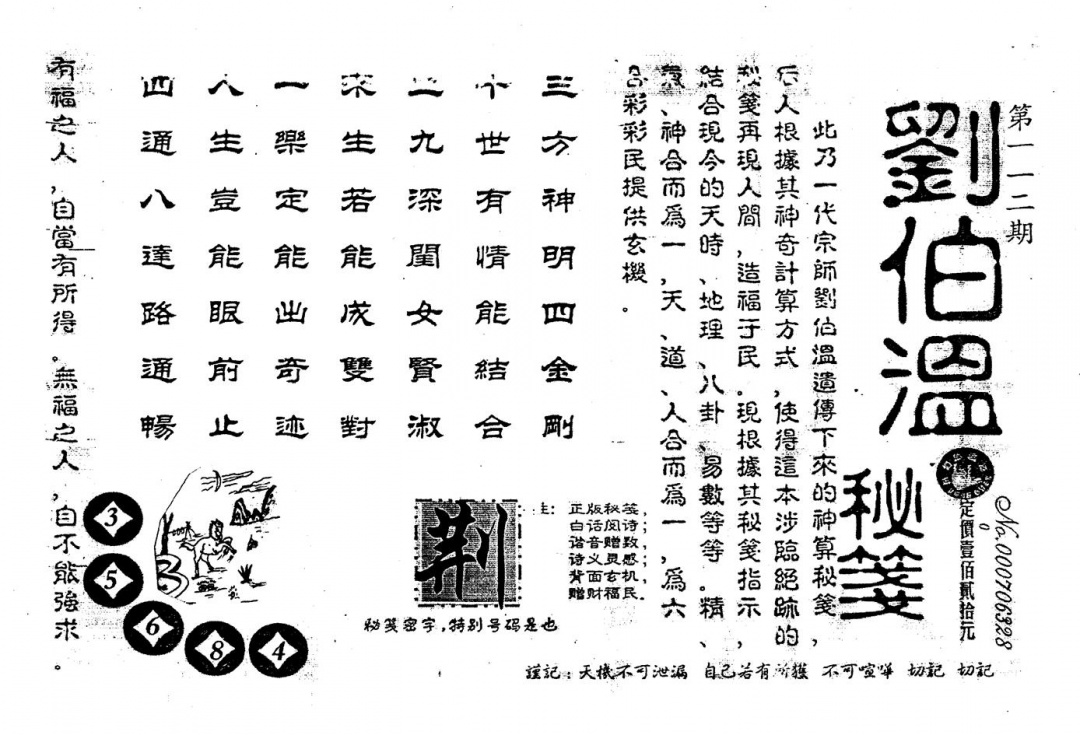 第一一二期
劉伯溫
秘箋
定價壹佰貳拾元
No.000706328
此乃一代宗師劉伯溫遺傳下來的神算秘箋,
后人根據其神奇計算方式,使得這本涉臨絕跡的
秘箋再現人間,造福于民.現根據其秘箋指示,
結合現今的天時、地理、八卦、易數等等.精、
氣、神合而爲一,天、道、人合而爲一,爲六
合彩彩民提供玄機.
三方神明四金剛
十世有情能結合
二九深閨女賢淑
來生若能成雙對
一樂定能出奇迹
人生豈能眼前止
四通八達路通暢
有福之人,自當有所得.無福之人,自不能強求.
荆
秘笺密字,特别号码是也
注: 正版秘笺
白话阅诗;
谐音赠致,
诗义灵感;
背面玄机,
赠财福民.
3
5
6
8
4
謹記:天機不可泄漏 自己若有所獲 不可喧嘩 切記 切記